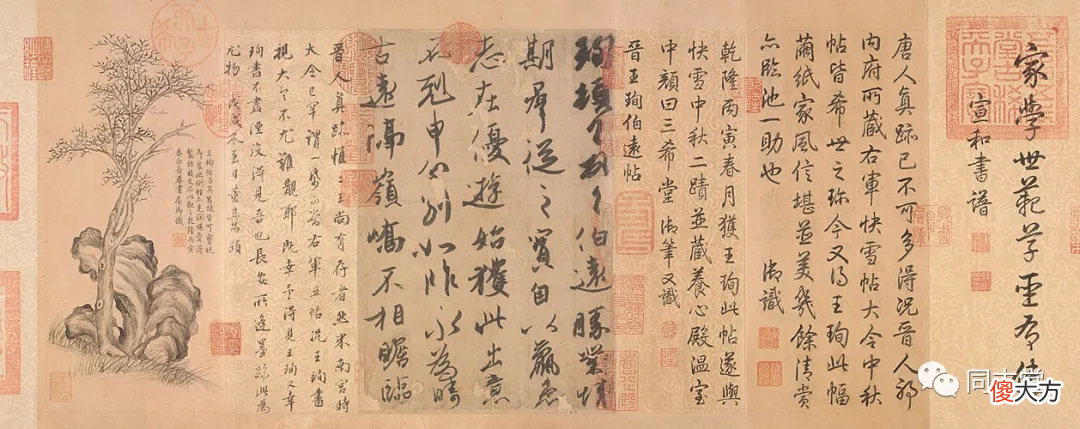 家學世範草聖有傳
宣和書譜
唐人真跡已不可多得況晉人耶
内府所藏右軍快雪帖大令中秋
帖皆希世之珍今又得王珣此幅
繭紙家風信堪並美幾餘清賞
亦臨池一助也 御識
乾隆丙寅春月獲王珣此帖遂與
快雪中秋二蹟並藏養心殿温室
中顏曰三希堂 御筆又識
晉王珣伯遠帖
珣頓首頓首伯遠勝業情
期群從之寶自以羸患
志在優遊始獲此出意
不剋申分別如昨永為疇
古遠隔嶺嶠不相瞻臨
晉人真跡惟二王尚有存者然米南宮時
大令已罕謂一紙可當右軍五帖況王珣書
視大令不尤難覯耶既幸予得見王珣又幸
珣書不盡湮沒得見吾也長安所逢墨跡此為
尤物 戊戌冬至日董其昌題
王珣帖與其昌跋皆可寶玩
即裝池側理亦光潤堪愛漫
製枯枝文石以配之乾隆丙寅
春正長春書屋御識
傻大方